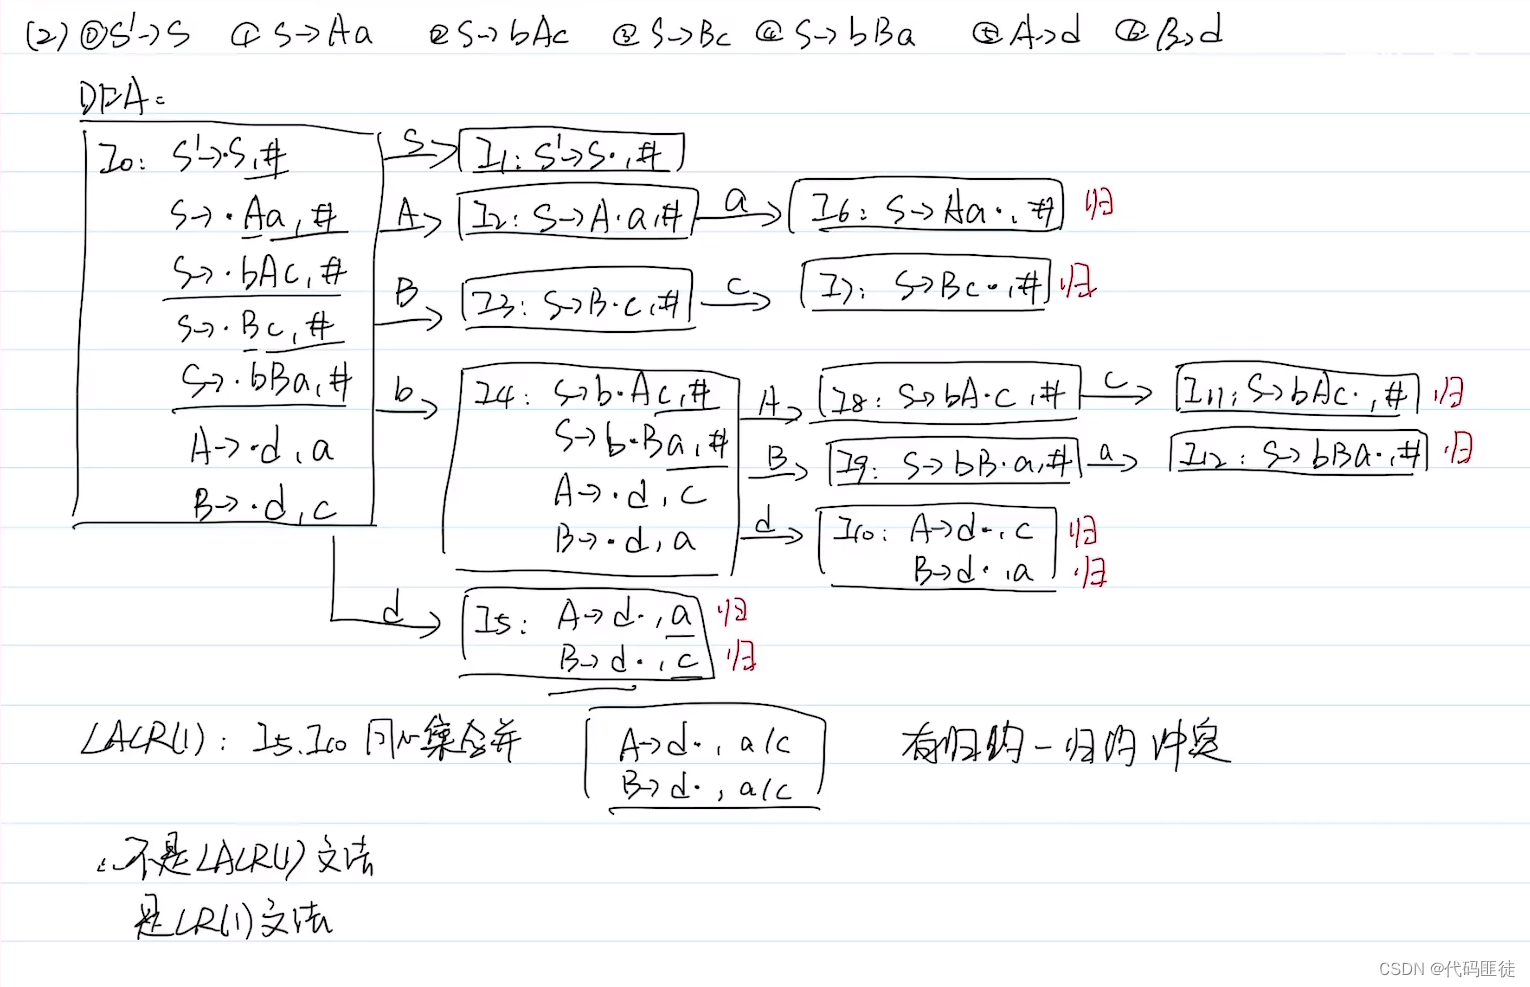 (2) ⓪S'→S ①S→Aa ②S→bAc ③S→Bc ④S→bBa ⑤A→d ⑥B→d
DFA:
I0: S'→·S,#
S→·Aa,#
S→·bAc,#
S→·Bc,#
S→·bBa,#
A→·d,a
B→·d,c
S
I1: S'→S·,#
A
I2: S→A·a,#
a
I6: S→Aa·,# 归
B
I3: S→B·c,#
c
I7: S→Bc·,# 归
b
I4: S→b·Ac,#
S→b·Ba,#
A→·d,c
B→·d,a
A
I8: S→bA·c,#
c
I11: S→bAc·,# 归
B
I9: S→bB·a,#
a
I12: S→bBa·,# 归
d
I10: A→d·,c 归
B→d·,a 归
d
I5: A→d·,a 归
B→d·,c 归
LALR(1): I5.I10 同心集合并
A→d·,a/c
B→d·,a/c
有归约-归约冲突
∴不是LALR(1)文法
是LR(1)文法
CSDN @代码匪徒